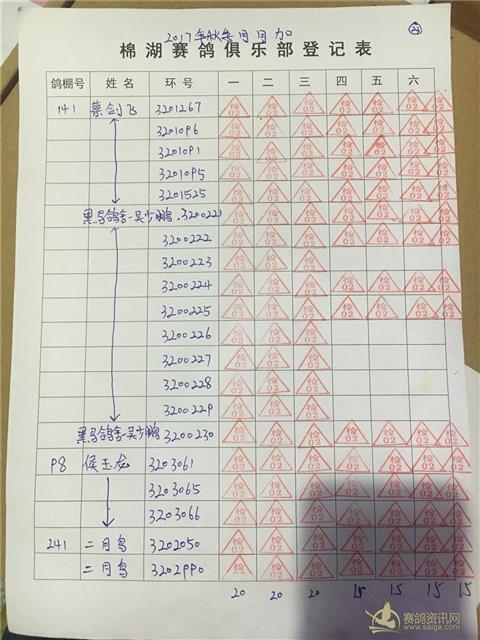 2017年秋冬月月加
22
棉湖赛鸽俱乐部登记表
鸽棚号 姓名 环号 一 二 三 四 五 六
141 蔡剑飞 3201267 检02 检02 检02 检02 检02 检02 检02
3201096 检02 检02 检02 检02 检02 检02 检02
3201091 检02 检02 检02 检02 检02 检02 检02
3201095 检02 检02 检02 检02 检02 检02 检02
3201525 检02 检02 检02 检02 检02 检02 检02
黑马鸽舍-吴少鹏 3200221 检02 检02 检02 检02 检02 检02 检02
3200222 检02 检02 检02 检02 检02 检02 检02
3200223 检02 检02 检02
3200224 检02 检02 检02 检02 检02 检02 检02
3200225 检02 检02 检02 检02 检02 检02 检02
3200226 检02 检02 检02
3200227 检02 检02 检02
3200228 检02 检02 检02
3200229 检02 检02 检02
黑马鸽舍-吴少鹏 3200230 检02 检02 检02 检02 检02 检02 检02
P8 侯玉龙 3203061 检02 检02 检02 检02 检02 检02 检02
3203065 检02 检02 检02 检02 检02 检02 检02
3203066 检02 检02 检02 检02 检02 检02 检02
241 二月鸟 3202050 检02 检02 检02 检02 检02 检02 检02
二月鸟 3202990 检02 检02 检02 检02 检02 检02 检02
20 20 20 15 15 15 15
赛鸽资讯网
www.saige.com